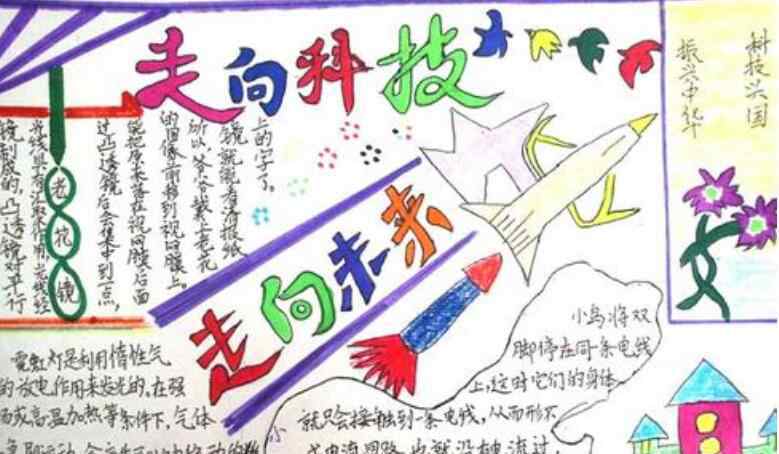 走向科技
走向未来
科技兴国
振兴中华
老花镜
镜制成的。凸透镜对平行
光线具有汇聚作用,当光线经
过凸透镜后会集中到一点,
能把原来落在视网膜后面
的图像前移到视网膜上。
所以,爷爷戴上老花
镜就能看清报纸
上的字了。
霓虹灯是利用惰性气
的放电作用来发光的。在强
场或高温加热等条件下,气体
小鸟将双
脚停在同一条电线
上,这时它们的身体
就只会接触到一条电线,从而形不